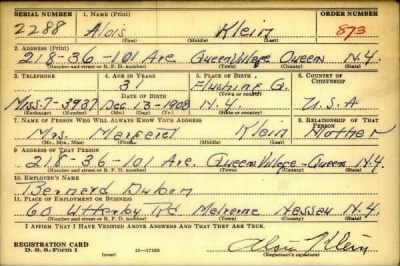 SERIAL NUMBER 1. NAME (Print) ORDER NUMBER
2288 Alois Klein 873
(First) (Middle) (Last)
2. ADDRESS (Print)
218-36-101 Ave Queen Village Queen N.Y.
(Number and street or R. F. D. number) (Town) (County) (State)
3. TELEPHONE 4. AGE IN YEARS 5. PLACE OF BIRTH 6. COUNTRY OF CITIZENSHIP
31 Flushing
DATE OF BIRTH
Miss 7-3937 Dec. 13-1908 N.Y. U.S.A
(Exchange) (Number) (Mo.) (Day) (Yr.) (State or country)
7. NAME OF PERSON WHO WILL ALWAYS KNOW YOUR ADDRESS 8. RELATIONSHIP OF THAT PERSON
Mrs. Margaret Klein Mother
(Mr., Mrs., Miss) (First) (Middle) (Last)
9. ADDRESS OF THAT PERSON
218-36-101 Ave. Queen Village-Queen N.Y.
(Number and street or R. F. D. number) (Town) (County) (State)
10. EMPLOYER'S NAME
Bernard
11. PLACE OF EMPLOYMENT OR BUSINESS
60 Rd. Malverne Nassau N.Y.
(Number and street or R. F. D. number) (Town) (County) (State)
I AFFIRM THAT I HAVE VERIFIED ABOVE ANSWERS AND THAT THEY ARE TRUE.
REGISTRATION CARD
D. S. S. Form 1 16-17105 Alois Klein
(Registrant's signature)